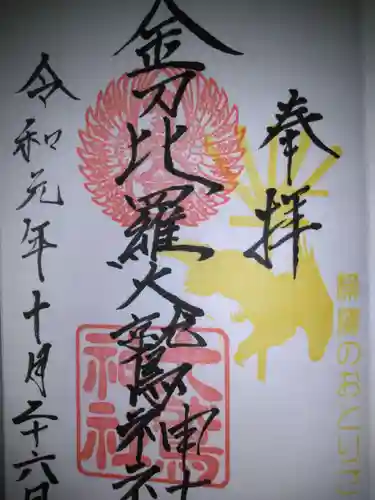 奉拝
開運のおとりさま
金刀比羅大鷲神社
大鷲
神社
令和元年十月二十六日